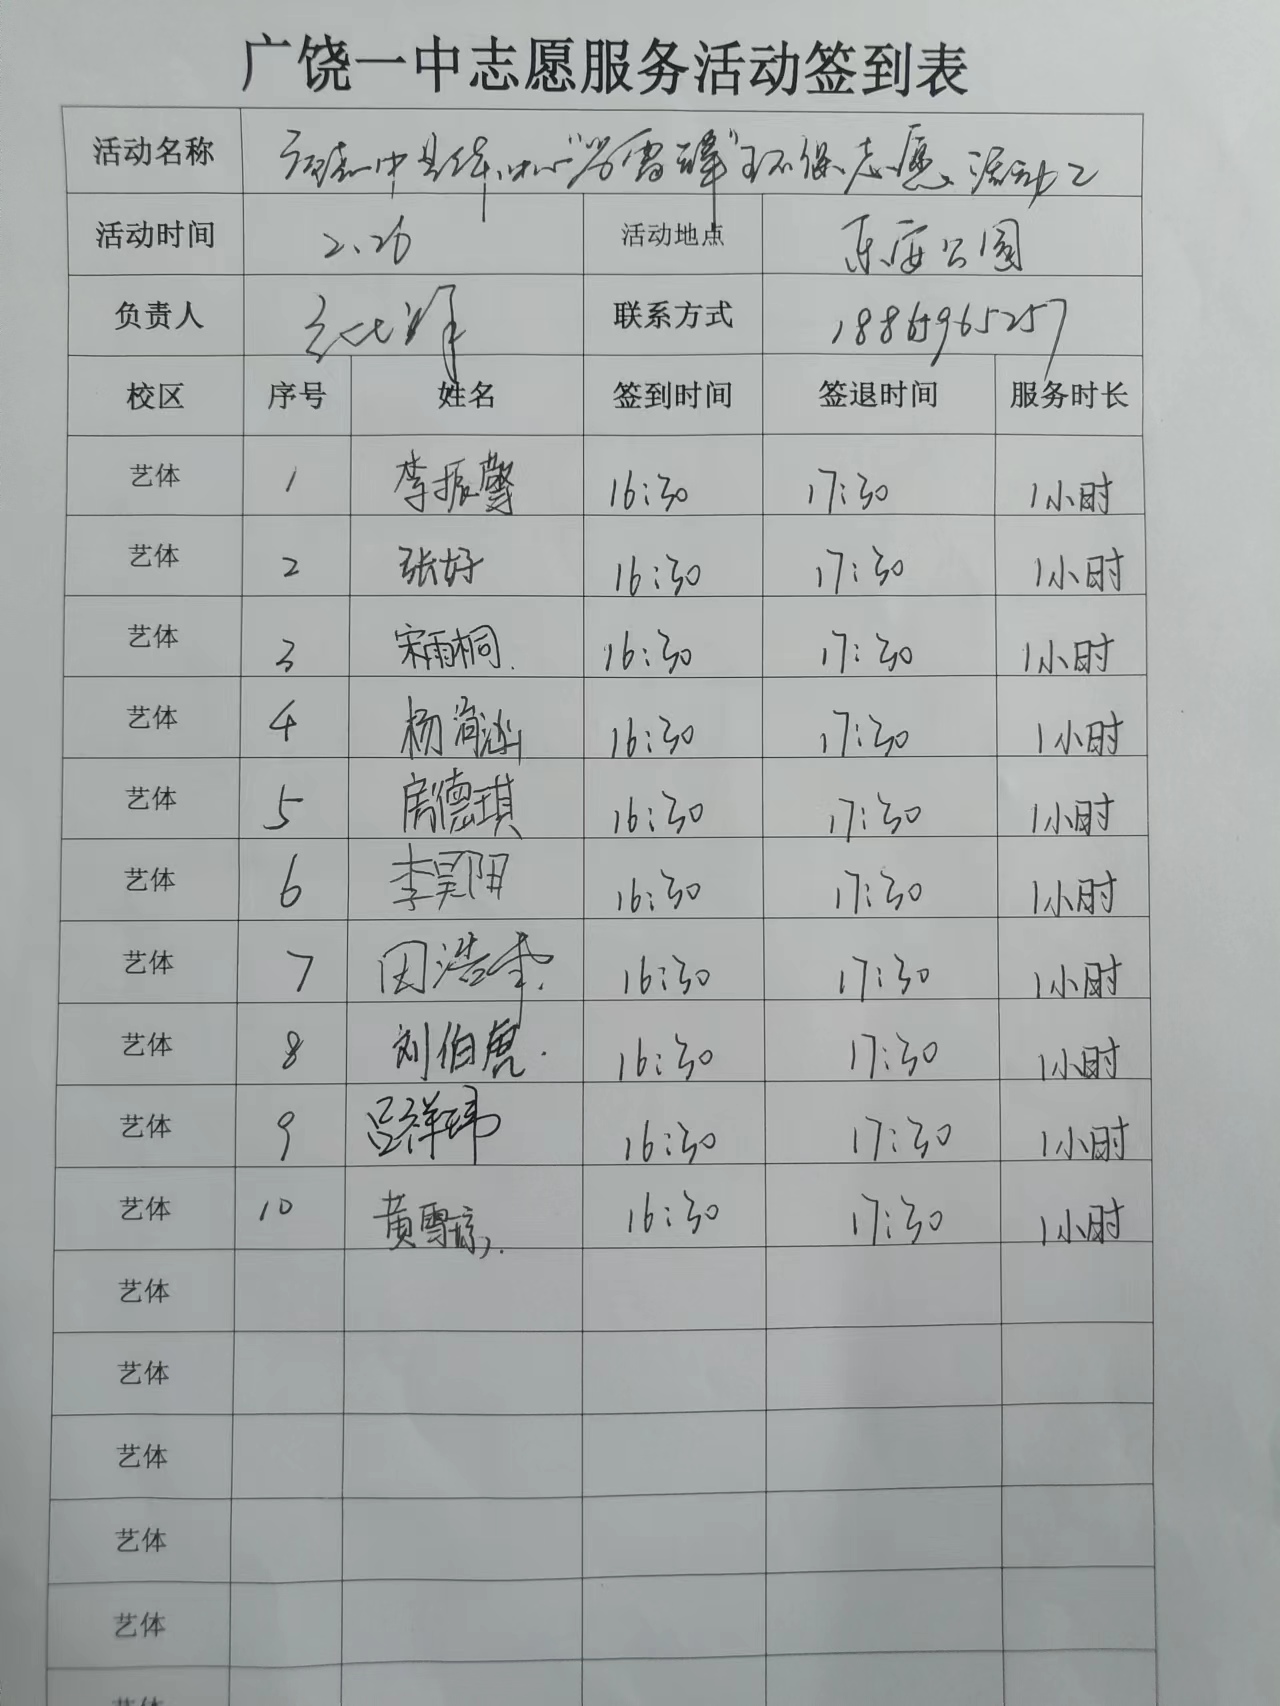 广饶一中志愿服务活动签到表
活动名称 广饶一中 中心"学雷锋"环保志愿活动2
活动时间 2.26 活动地点 东安公园
负责人 联系方式 18864965257
校区 序号 姓名 签到时间 签退时间 服务时长
艺体 1 李振馨 16:30 17:30 1小时
艺体 2 张好 16:30 17:30 1小时
艺体 3 宋雨桐. 16:30 17:30 1小时
艺体 4 杨涵 16:30 17:30 1小时
艺体 5 房德琪 16:30 17:30 1小时
艺体 6 李昊阳 16:30 17:30 1小时
艺体 7 田浩 16:30 17:30 1小时
艺体 8 刘伯虎. 16:30 17:30 1小时
艺体 9 吕祥玮 16:30 17:30 1小时
艺体 10 黄雪琼. 16:30 17:30 1小时
艺体
艺体
艺体
艺体
艺体
艺体